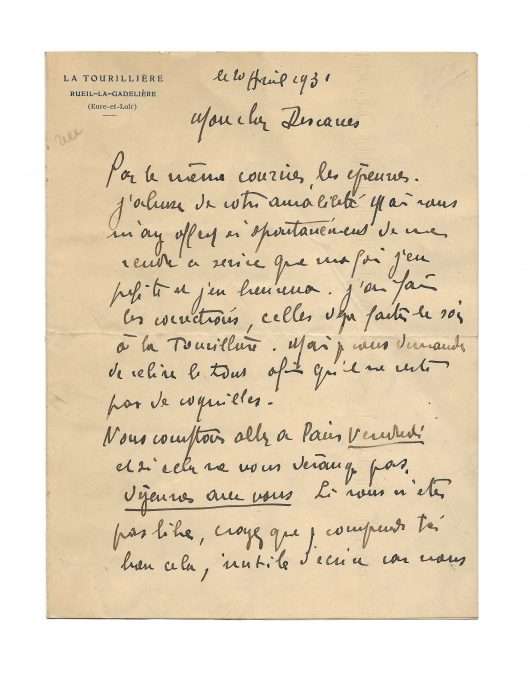 LA TOURILLIÈRE
RUEIL-LA-GADELIÈRE
(Eure-et-Loir)
le 20 Avril 1931
Mon cher Descaves
Par le même courrier, les épreuves.
J'abuse de votre amabilité Mais vous
m'avez offert si spontanément de me
rendre ce service que ma foi j'en
profite et j'en . J'ai fait
les corrections, celles déjà faites le soir
à la Tourillière. Mais je vous demande
de relire le tout afin qu'il ne reste
pas de coquilles.
Nous comptons aller à Paris Vendredi
et si cela ne vous dérange pas,
déjeuner avec vous Si vous n'êtes
pas libre, croyez que je comprends très
bien cela, inutile d'écrire car nous